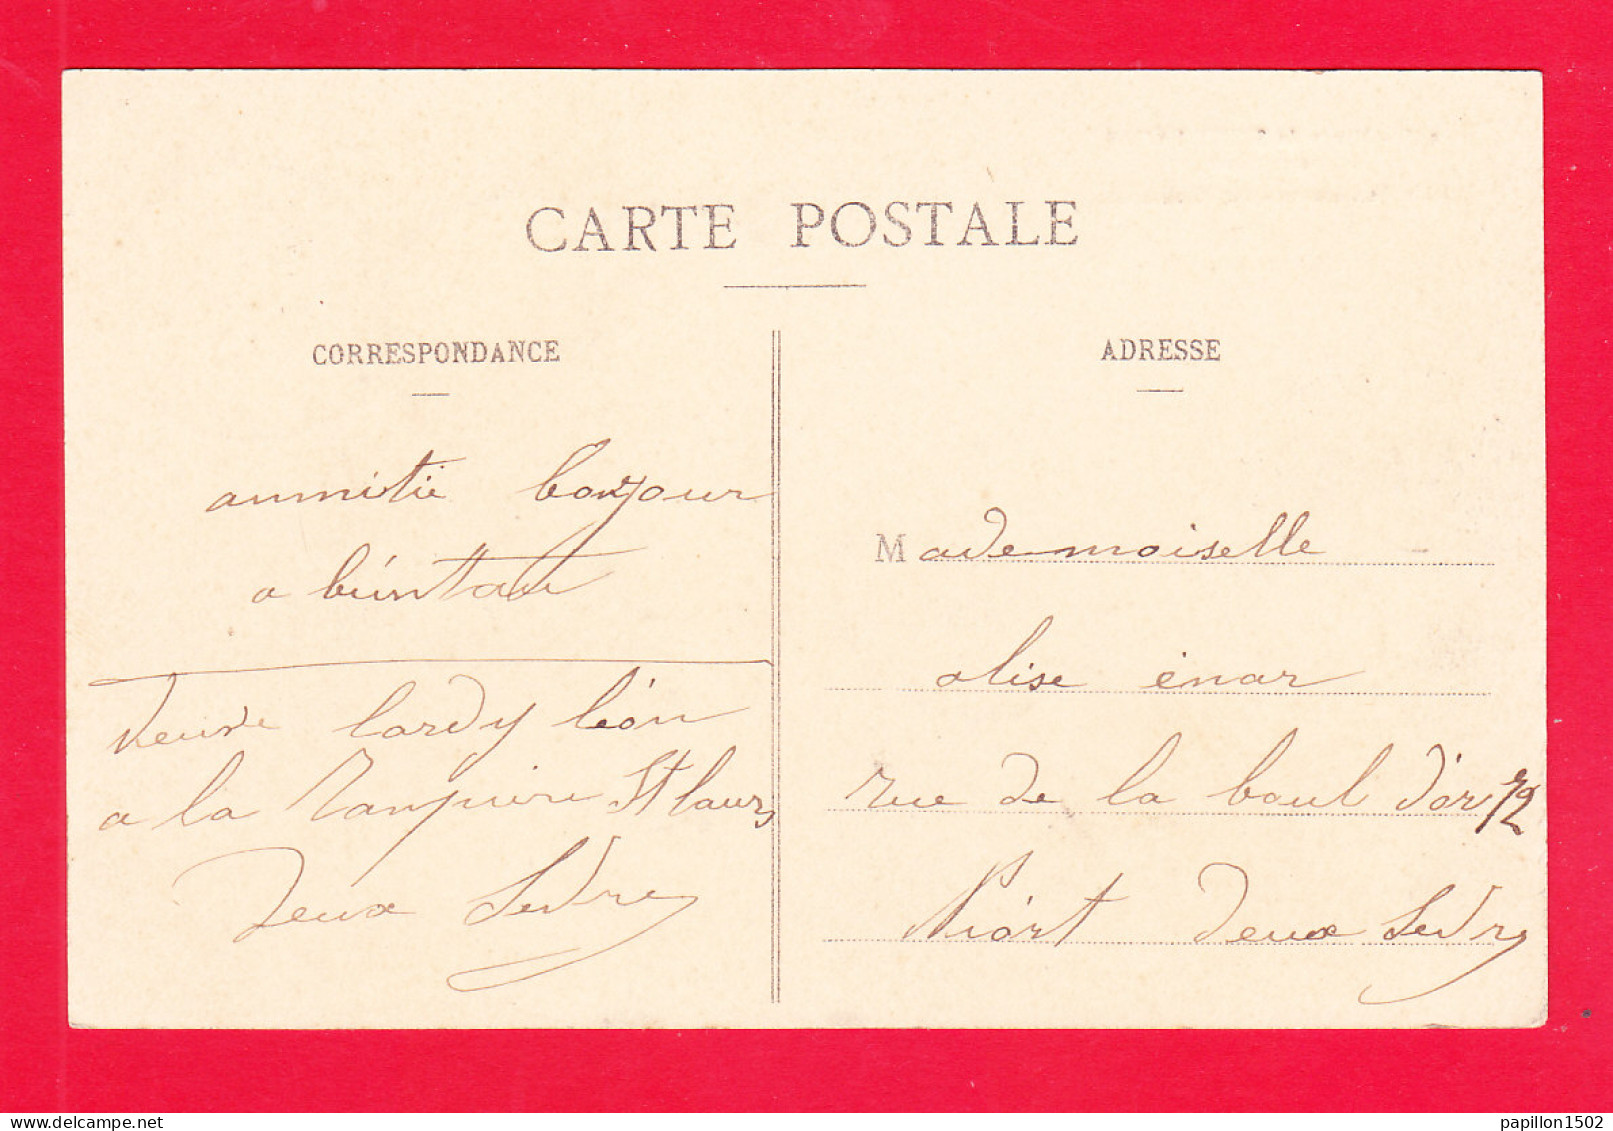 CARTE POSTALE
CORRESPONDANCE
ammitié bonjour
a biéntau
veuve lardy léon
a la St laurs
Deux Sevres
ADRESSE
Mademoiselle
alise énar
rue de la boul d'or 72
Niort Deux Sevres
papillon1502